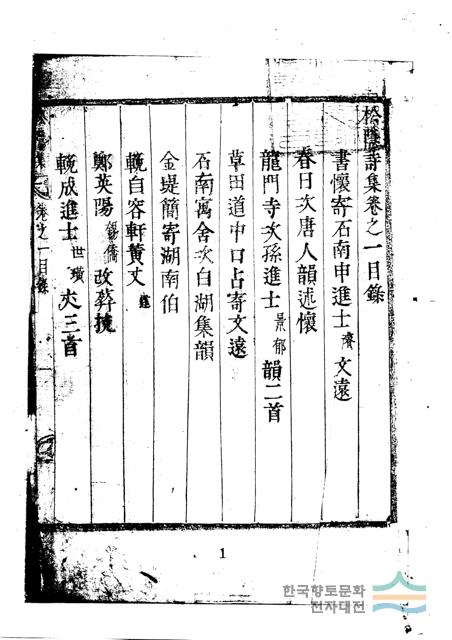 松隱詩集卷之一目錄
書懷寄石南申進士 濟 文遠
春日次唐人韻述懷
龍門寺次孫進士 景郁 韻二首
草田道中口占寄文遠
石南寓舍次白湖集韻
金堤簡寄湖南伯
輓自容軒黃丈
鄭英陽 改葬輓
輓成進士 世璜 丈三首
卷之一目錄
1
한국향토문화
전자대전